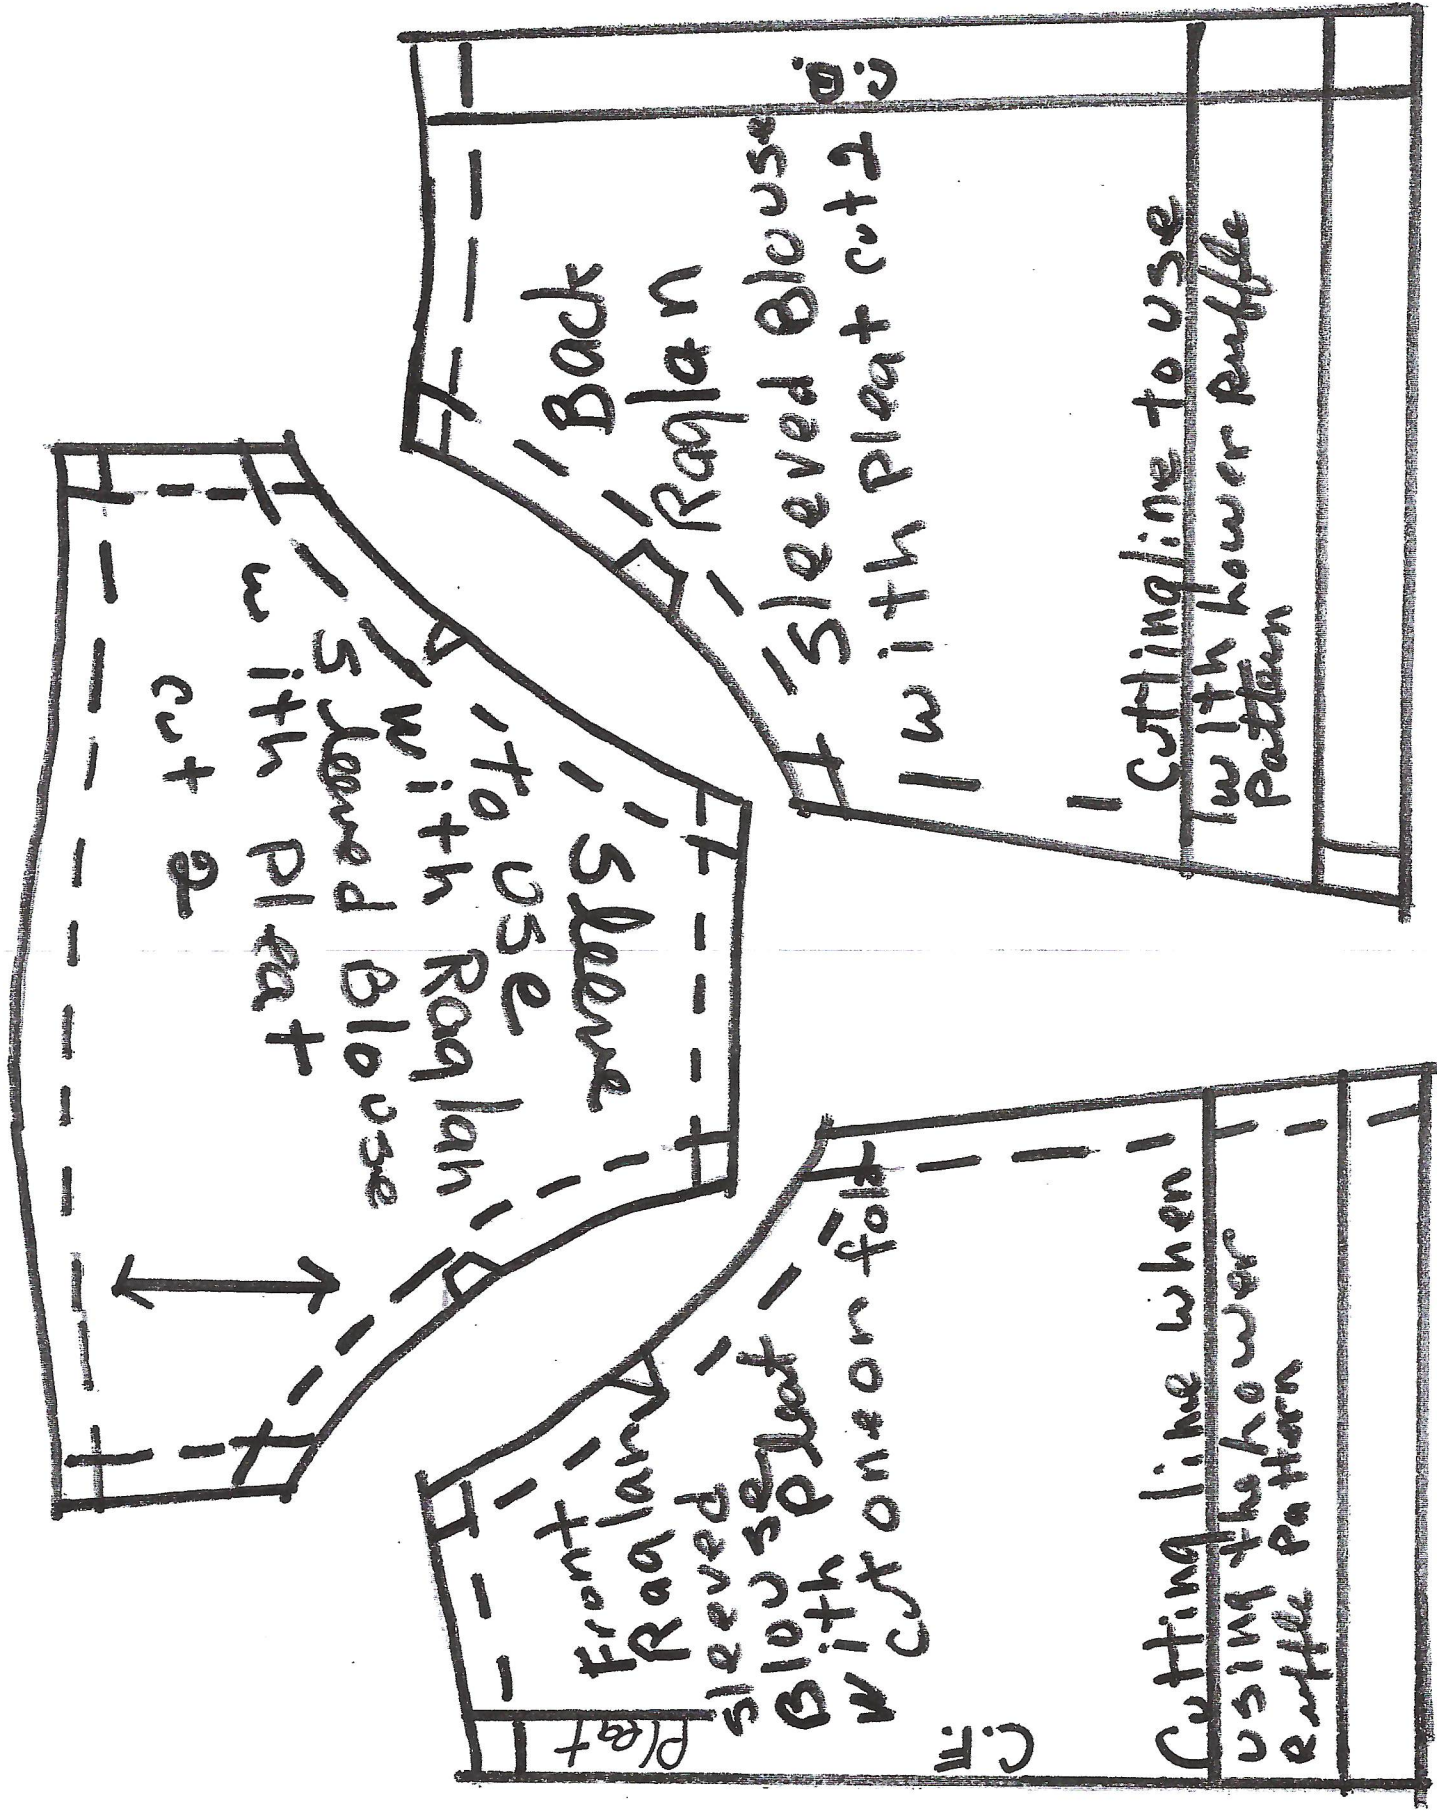 C.
B.
Back
Raglan
Sleeved Blouse
with pleat cut 2
Cuttingline to use
with hower Ruffle
Pattern
Sleeve
to use
with Raglan
Sleeved Blouse
with Pleat
cut 2
Front
Raglan
Sleeved
Blouse
with Pleat
cut one on fold
Pleat
C.F.
Cutting line when
using the hower
Ruffle Pattern